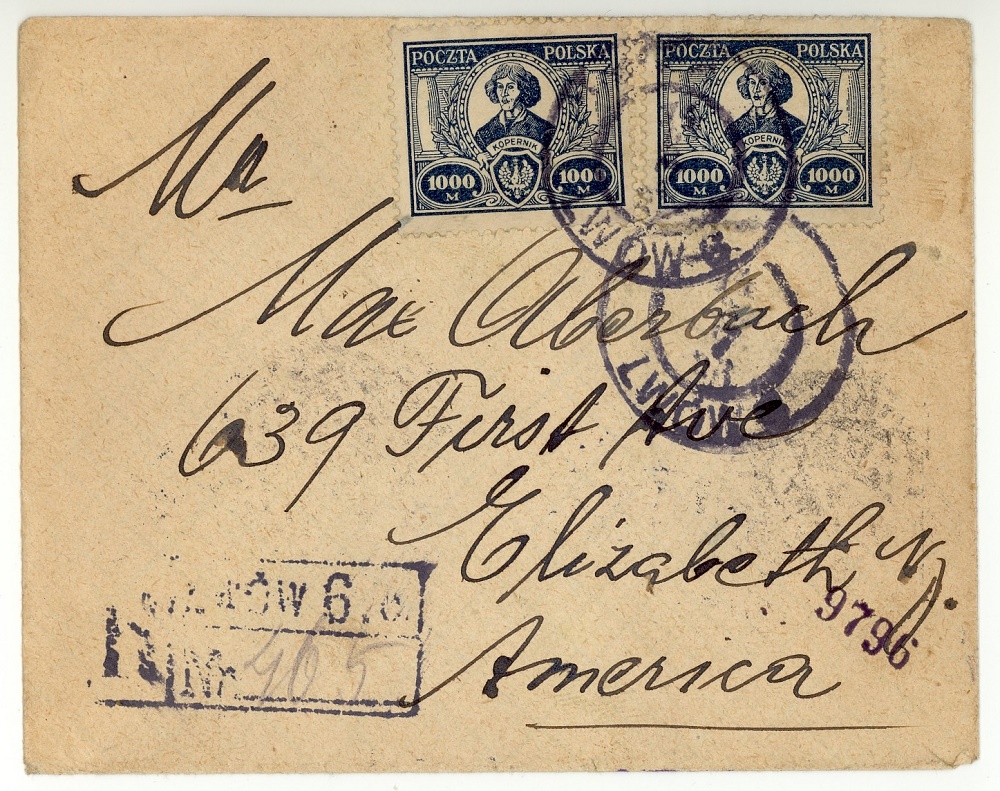 POCZTA POLSKA
KOPERNIK
1000 M 1000 M
POCZTA POLSKA
KOPERNIK
1000 M 1000 M
LWÓW-6
LWÓW
Mr
Max Aberbach
639 First Ave
Elizabeth N.J.
America
9796
LWÓW 6
R No 965